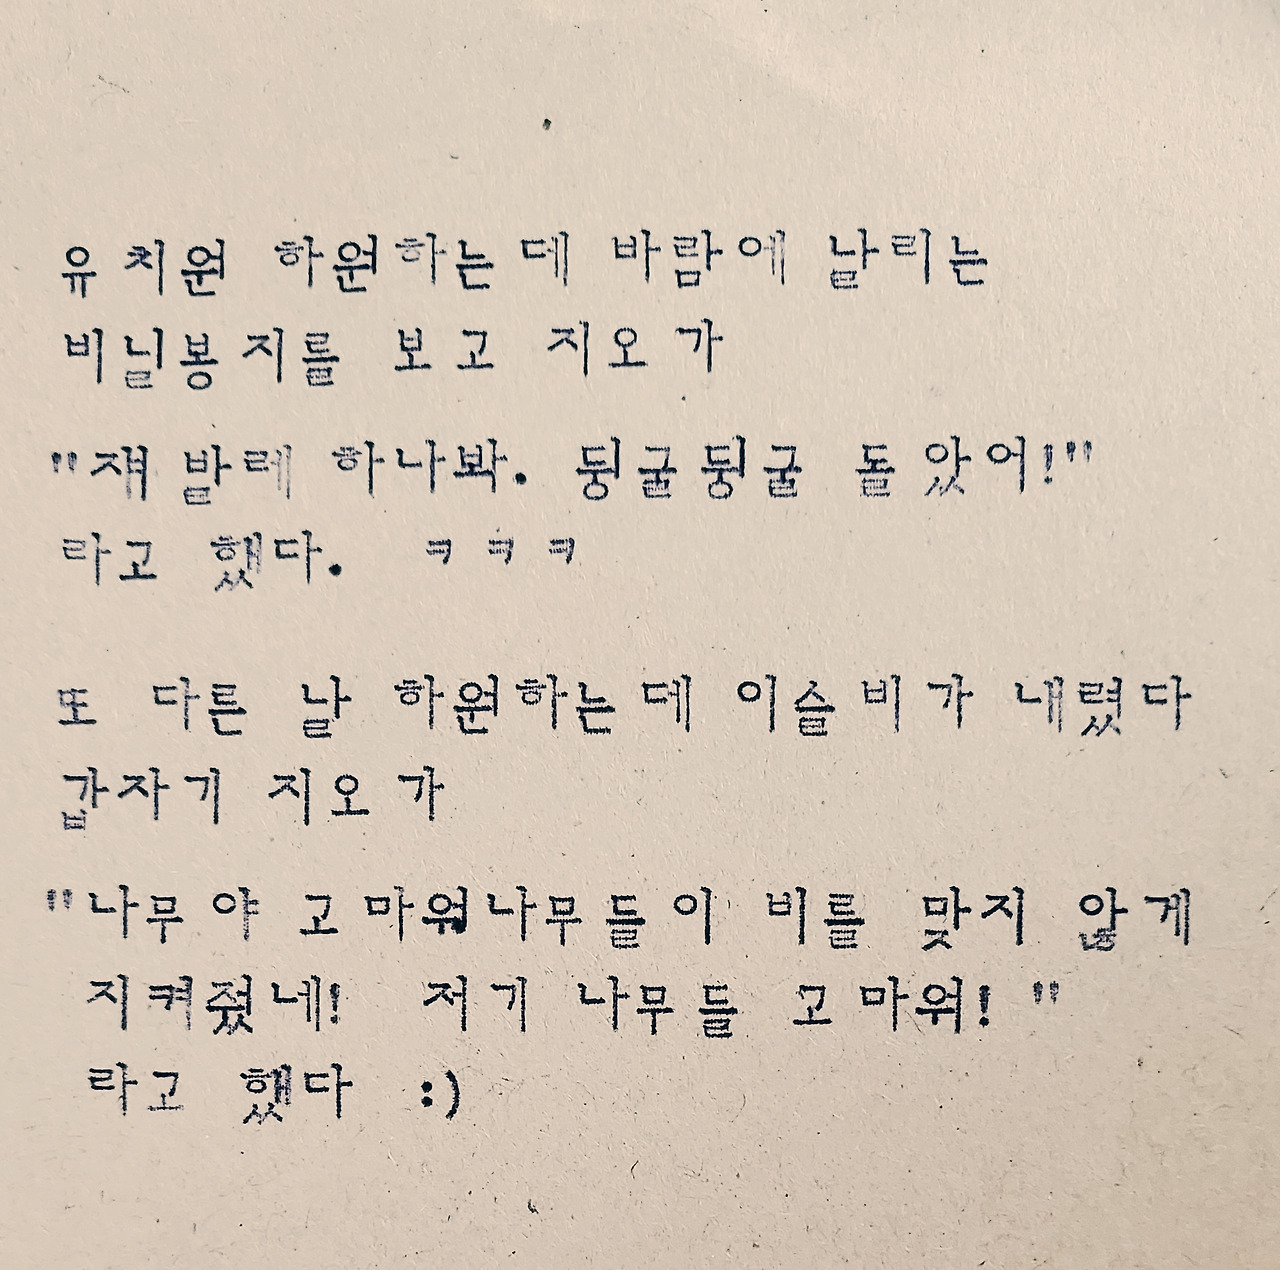 유치원 하원하는데 바람에 날리는
비닐봉지를 보고 지오가
"쟤 발레 하나봐. 뒹굴뒹굴 돌았어!"
라고 했다. ㅋㅋㅋ
또 다른 날 하원하는데 이슬비가 내렸다
갑자기 지오가
"나무야 고마워나무들이 비를 맞지 않게
지켜줬네! 저기 나무들 고마워! "
라고 했다 :)